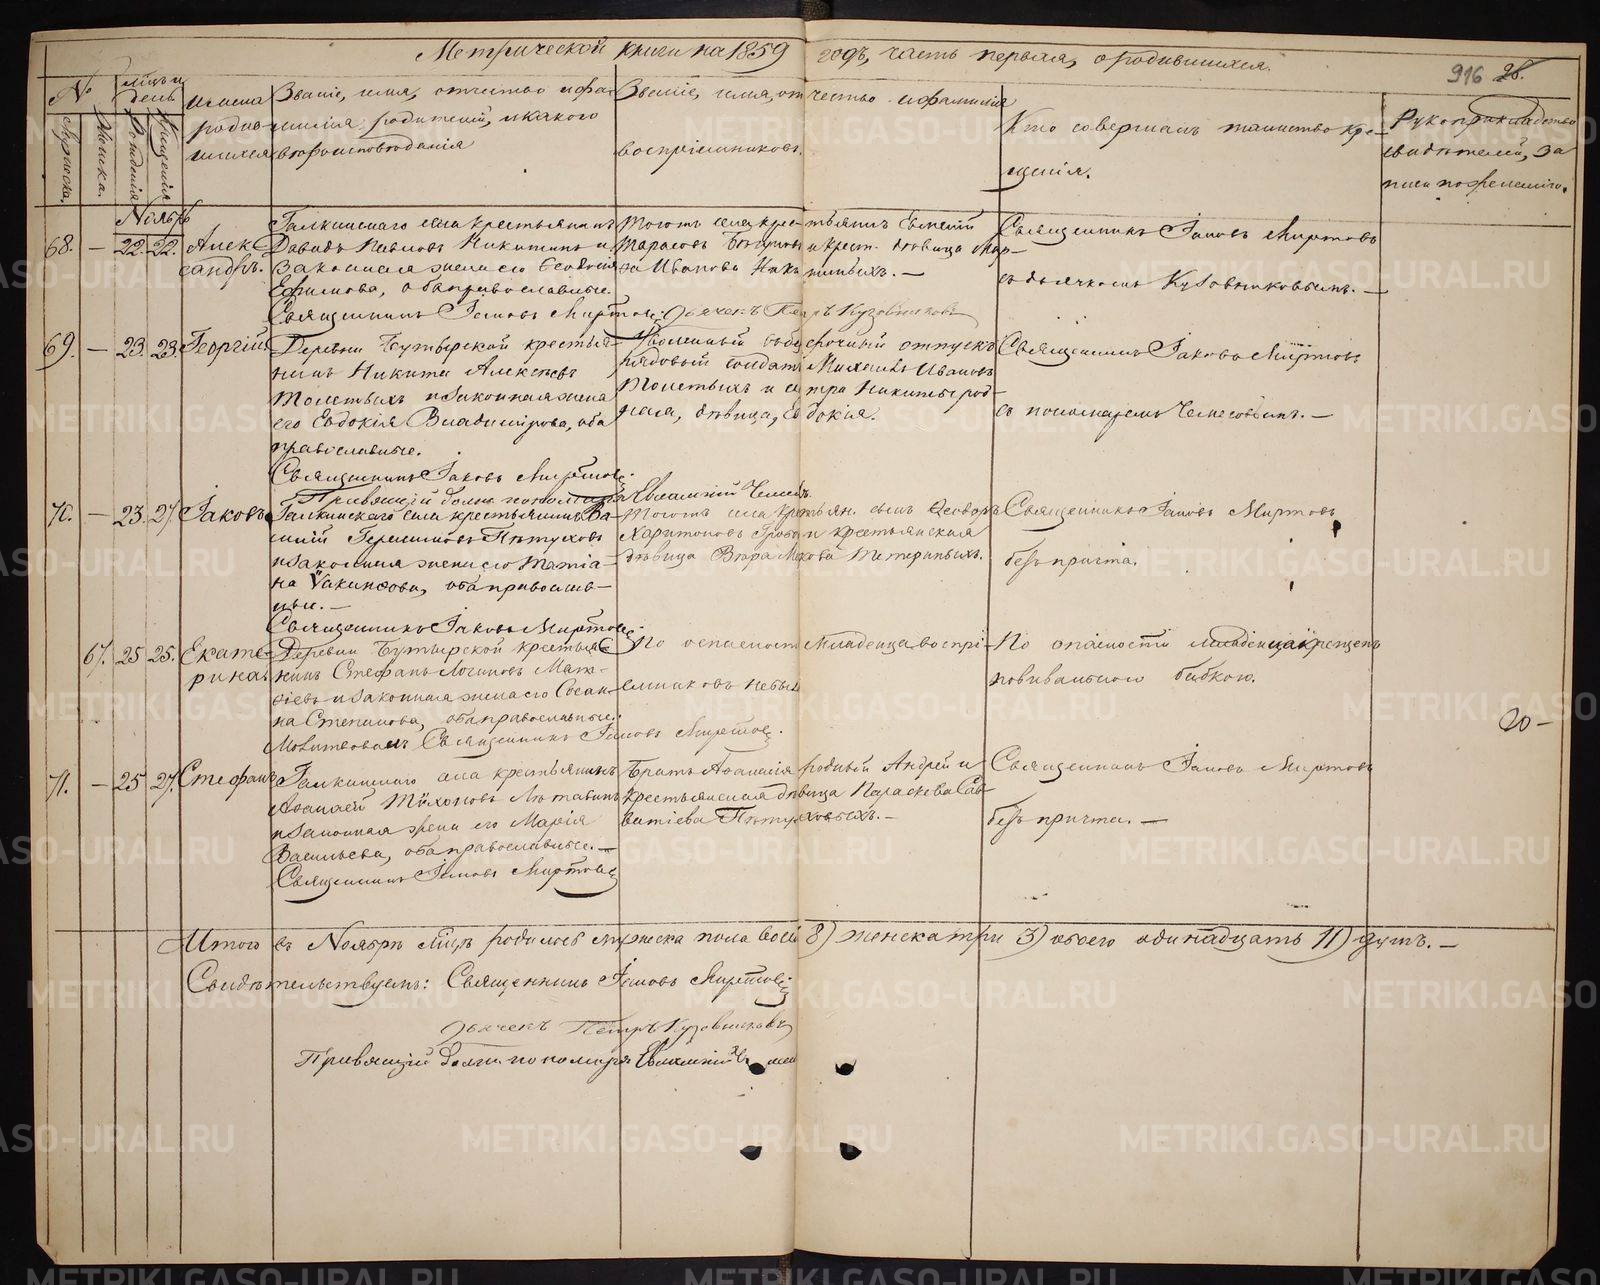 Метрической книги на 1859 годъ, часть первая, о родившихся.
916 28.
№
Мужеска.
Женска.
Мѣсяцъ и день
Рожденія
Крещенія
Имена родившихся
Званіе, имя, отчество и фамилія родителей, и какого вѣроисповѣданія
Званіе, имя, отчество и фамилія воспріемниковъ.
Кто совершалъ таинство крещенія.
Рукоприкладство свидѣтелей записи по желанію.
Ноябрь
68. — 22. 22. Александръ.
Галкинскаго села крестьянинъ
Давидъ Павловъ Никитинъ и
законная жена его Ѳеодосія
Ефимова, оба православные.
Священникъ Іаковъ Миртовъ. Дьячекъ Петръ Кузовниковъ
Тогоже села крестьянинъ Евгеній
Тарасовъ и крест. дѣвица Мар-
Иванова
Священникъ Іаковъ Миртовъ
съ дьячкомъ Кузовниковымъ. —
69. — 23. 23. Георгій.
Деревни Бутырской крестья-
нинъ Никита Алексѣевъ
Толстыхъ и законная жена
его Евдокія Владимірова, оба
православные.
Священникъ Іаковъ Миртовъ
отпускъ
рядовый солдатъ Михаилъ Ивановъ
Толстыхъ и сестра Никиты род-
ная, дѣвица, Евдокія.
Священникъ Іаковъ Миртовъ
съ пономаремъ —
70. — 23. 27. Іаковъ.
Правящій долж. пономаря Евгеній
Галкинскаго села крестьянинъ Ва-
силій Герасимовъ Пѣтуховъ
и законная жена его Татіа-
на Іакинѳова, оба православ-
ные. —
Священникъ Іаковъ Миртовъ
Тогоже села крестьян. сынъ Ѳеодоръ
Харитоновъ и крестьянская
дѣвица Вѣра
Священникъ Іаковъ Миртовъ
безъ причта.
67. 25 25. Екатерина.
Деревни Бутырской крестья-
нинъ Стефанъ Логиновъ Мат-
ѳіевъ и законная жена его Сосан-
на Степанова, оба православные.
Молитвовалъ Священникъ Іаковъ Миртовъ.
По опасности младенца воспрі-
емниковъ небыло
По опасности младенца крещенъ
повивальною бабкою.
20 —
71. — 25 27. Стефанъ
Галкинскаго села крестьянинъ
Аѳанасій Тихоновъ
и законная жена его Марія
Васильева, оба православные. —
Священникъ Іаковъ Миртовъ
Братъ Аѳанасія родный Андрей и
крестьянская дѣвица Параскева Сав-
ватіева Пѣтуховыхъ. —
Священникъ Іаковъ Миртовъ
безъ причта. —
Итого въ Ноябрѣ мѣсяцѣ родилось мужеска пола 8) женска три 3) обоего одинадцать 11) душъ. —
Свидѣтельствуемъ: Священникъ Іаковъ Миртовъ
Дьячекъ Петръ Кузовниковъ
Правящій долж. пономаря Евгеній
METRIKI.GASO-URAL.RU